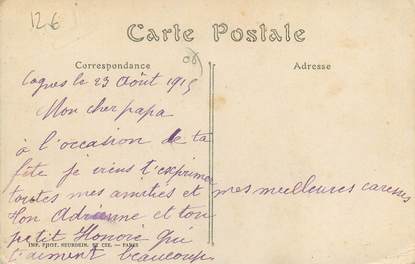 126
Carte Postale
Correspondance
Adresse
Cagnes le 23 Août 1915
Mon cher papa
à l'occasion de ta
fête je viens t'exprimer
toutes mes amitiés et mes meilleures caresses
Ton Adrienne et ton
petit Honoré qui
t'aiment beaucoup
IMP. PHOT. NEURDEIN ET CIE. — PARIS